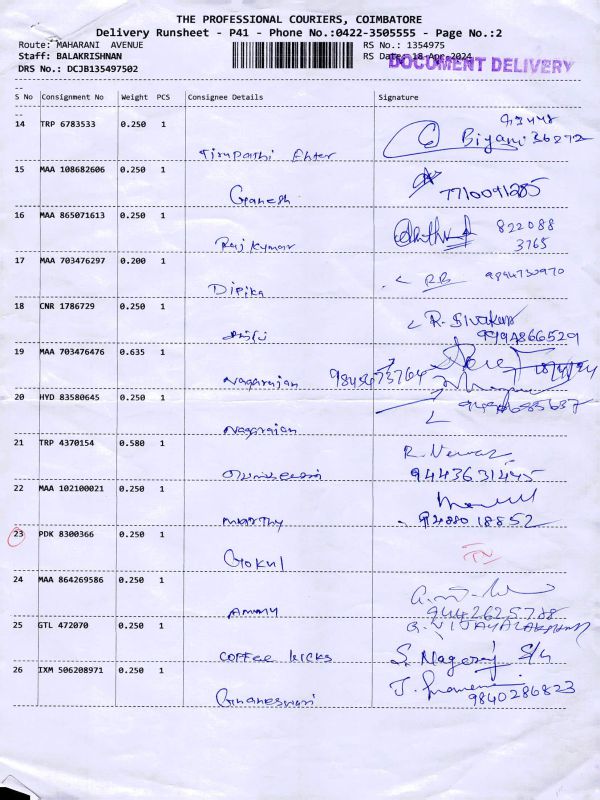 THE PROFESSIONAL COURIERS, COIMBATORE
Delivery Runsheet - P41 - Phone No.:0422-3505555 - Page No.:2
Route: MAHARANI AVENUE
RS No.: 1354975
Staff: BALAKRISHNAN
RS Date: 18-Apr-2024
DRS No.: DCJB135497502
DOCUMENT DELIVERY
S No Consignment No Weight PCS Consignee Details Signature
14 TRP 6783533 0.250 1
Biyani 36272
Tirupathi
15 MAA 108682606 0.250 1
Ganesh 7710091285
16 MAA 865071613 0.250 1
822088
3765
Raj kumar
17 MAA 703476297 0.200 1
R.R 9894730970
Dipika
18 CNR 1786729 0.250 1
R. Sivakumar
9994866529
19 MAA 703476476 0.635 1
Nagarajan
20 HYD 83580645 0.250 1
Nagarajan
21 TRP 4370154 0.580 1
9443631445
22 MAA 102100021 0.250 1
MURTHY
23 PDK 8300366 0.250 1
Gokul
24 MAA 864269586 0.250 1
Ammy
9442625788
25 GTL 472070 0.250 1
G. VIJAYALAKSHMI
COFFEE KICKS S. Nagaraj S/G
26 IXM 506208971 0.250 1
Gnaneswari 9840286823